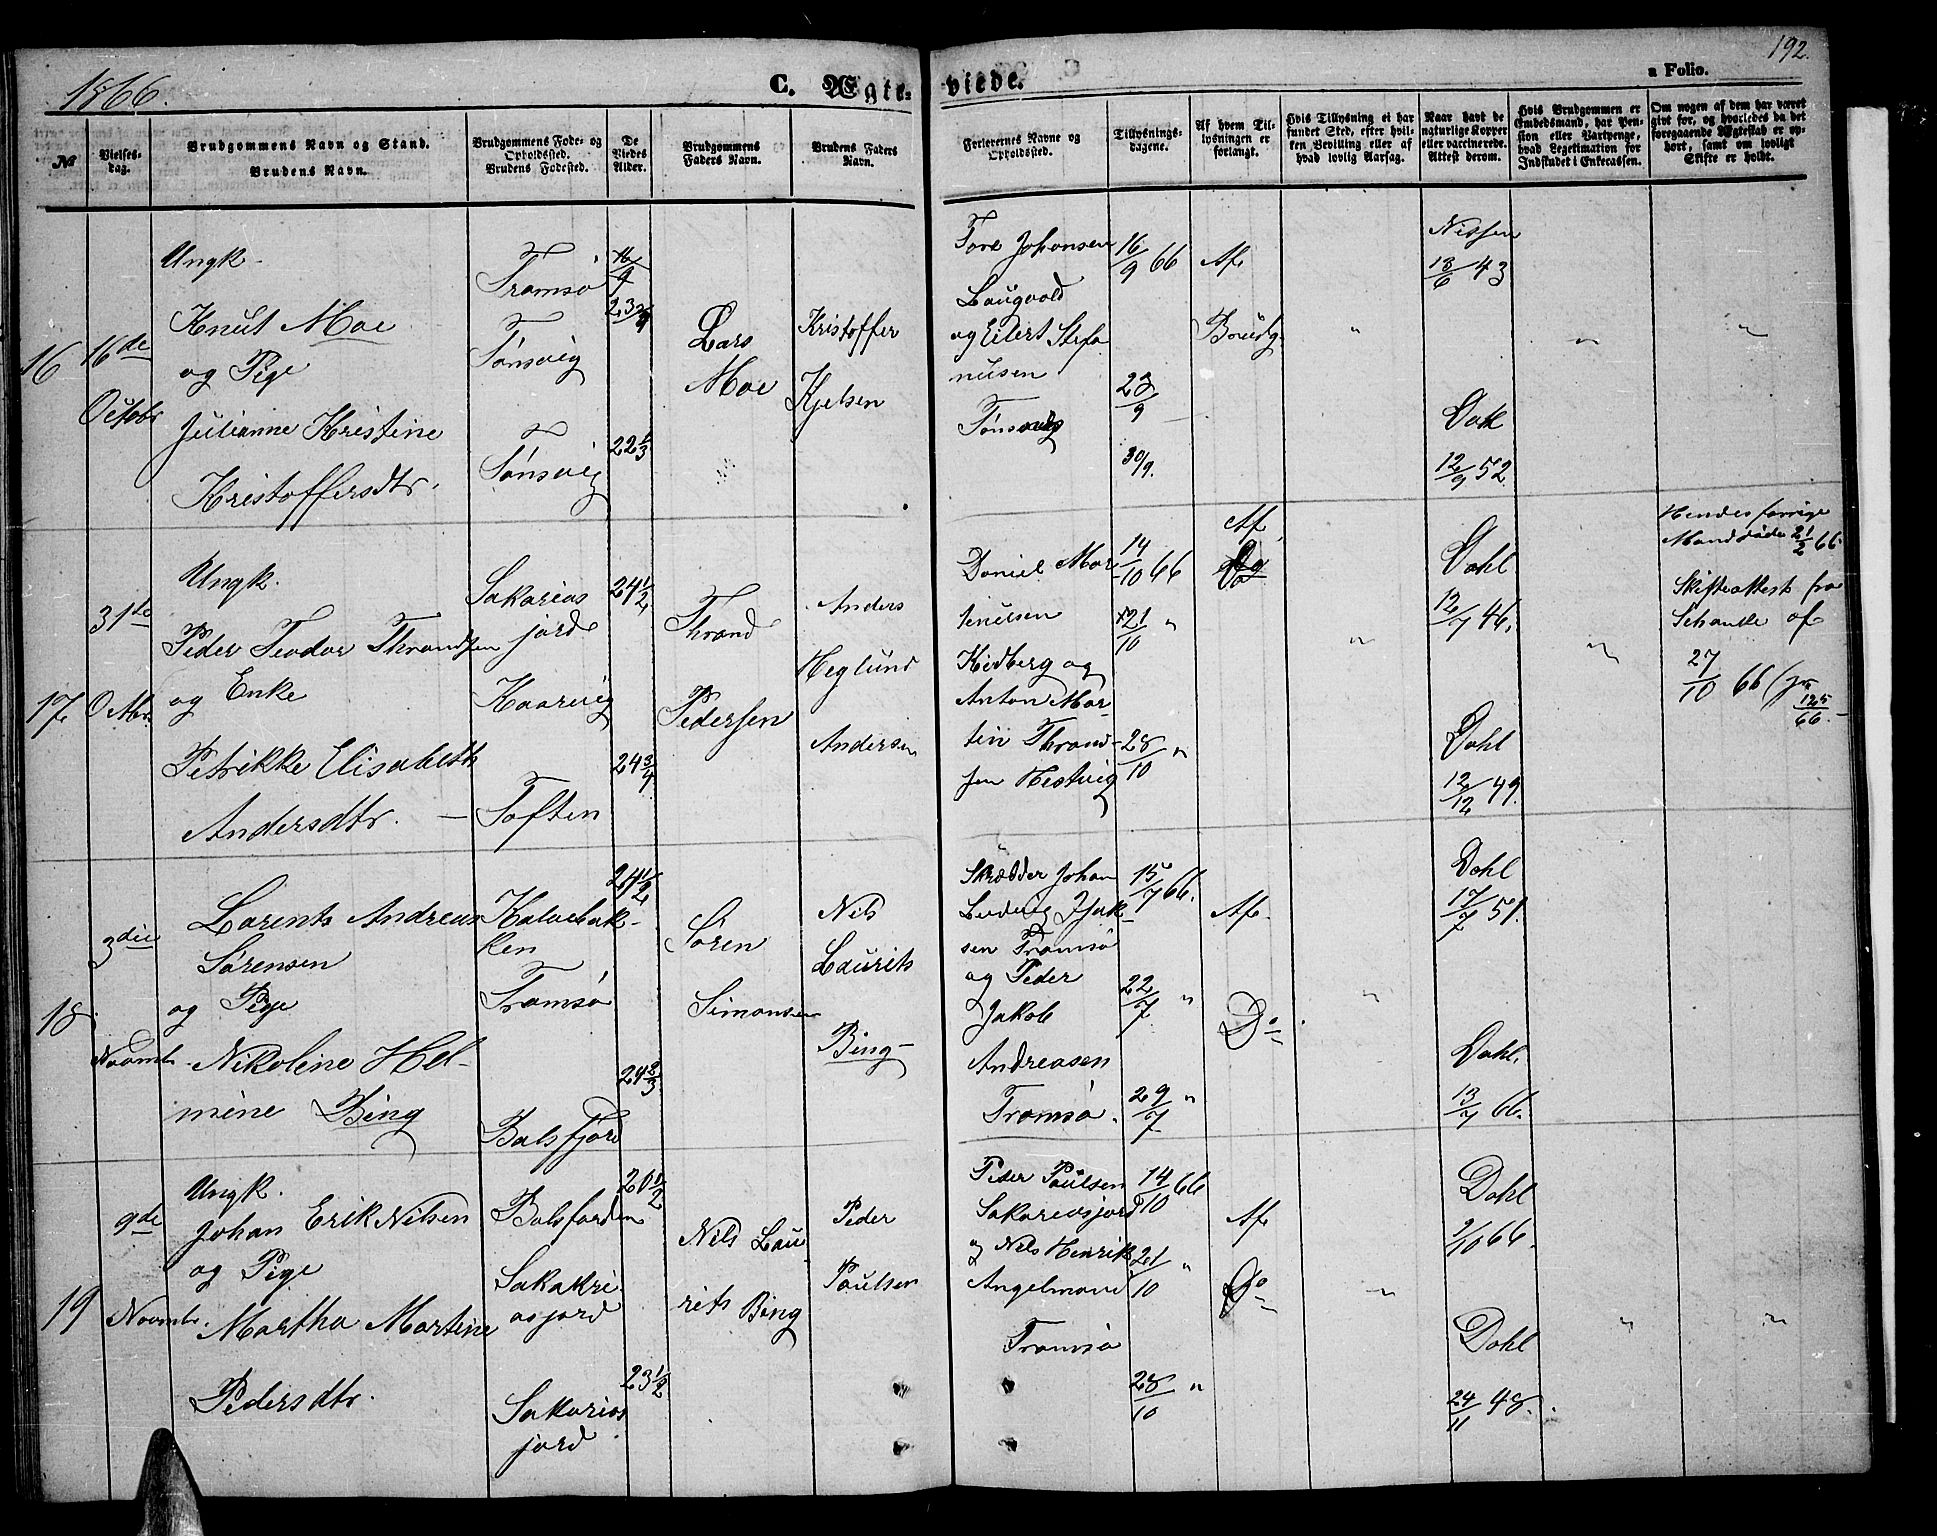 1866.
C. Ægte-
viede.
192.
a Folio.
№
Vielses-
dag.
Brudgommens Navn og Stand.
Brudens Navn.
Brudgommens Føde- og
Opholdssted.
Brudens Fødested.
De
Viedes
Alder.
Brudgommens
Faders Navn.
Brudens Faders
Navn.
Forlovernes Navne og
Opholdssted.
Tillysnings-
dagene.
Af hvem Til-
lysningen er
forlangt.
Hvis Tillysning ei har
fundet Sted, efter hvil-
ken Bevilling eller af
hvad lovlig Aarsag.
Naar havt de
naturlige Kopper
eller vaccinerede.
Attest derom.
Hvis Brudgommen er
Embedsmand, har Pen-
sion eller Vartpenge,
hvad Legitimation for
Indskudet i Enkecassen.
Om nogen af dem har været
givt for, og hvorledes da det
foregaaende Ægteskab er op-
hørt, samt om lovligt
Skifte er holdt.
16
16de
Octobr
Ungk.
Knut Moe
og Pige
Julianne Kristine
Kristoffersdtr.
Tromsø
Tønsvig
Tønsvig
22 1/3
Lars
Moe
Kristoffer
Kjelsen
Tore Johansen
Laugvold
og Eilert Stefa
nusen
Tønsvig
16/9 66
23/9
30/9.
Af
Brudg.
"
Nissen
13/6 43
Dok
12/9 52
"
"
17
31te
Octbr.
Ungk.
Peder Teodor Thrandsen
og Enke
Petrikke Elisabeth
Andersdtr. –
Sakarias
jord
Kaarvig
Toften
24 1/2
24 3/4
Thrand
Pedersen
Anders
Heglund
Andersen
Daniel Mor
tenusen
Kidberg og
Anton Mar-
tin Thrand-
sen Hestvig
14/10 66
21/10 "
28/10 "
Af
"
Dahl
12/7 46.
Dahl
12/12 49.
"
Hendes forrige
Mand døde 21/2 66.
Skifteattest fra
Schanke af
27/10 66 (
125/66.
18
3die
Novmb.
Lorents Andreas
Sørensen
og Pige
Nikoline Hel-
mine Bing
Kalvebak-
ken
Tromsø
Balsfjord
24 1/2
24 2/3
Søren
Simonsen
Nils
Laurits
Bing
Skrædder Johan
Ludvig Isak-
sen Tromsø
og Peder
Jakob
Andreasen
Tromsø.
15/7 66.
22/7 "
29/7 "
Af.
Do
"
Dahl
17/7 51.
Dahl.
13/7 66.
19
9de
Novmbr.
Ungk.
Johan Erik Nilsen
og Pige
Martha Martine
Pedersdtr.
Balsforden
Sakakri
asjord
Sakarias
jord
20 1/2
23 1/2
Nils Lau
rits Bing
Peder
Paulsen
Peder Paulsen
Sakariasjord
og Nils Henrik
Angelmand
Tromsø
14/10 66
21/10 "
28/10 "
Af
Do
"
Dahl
9/10 66.
Dahl
24/11 48.
"
"